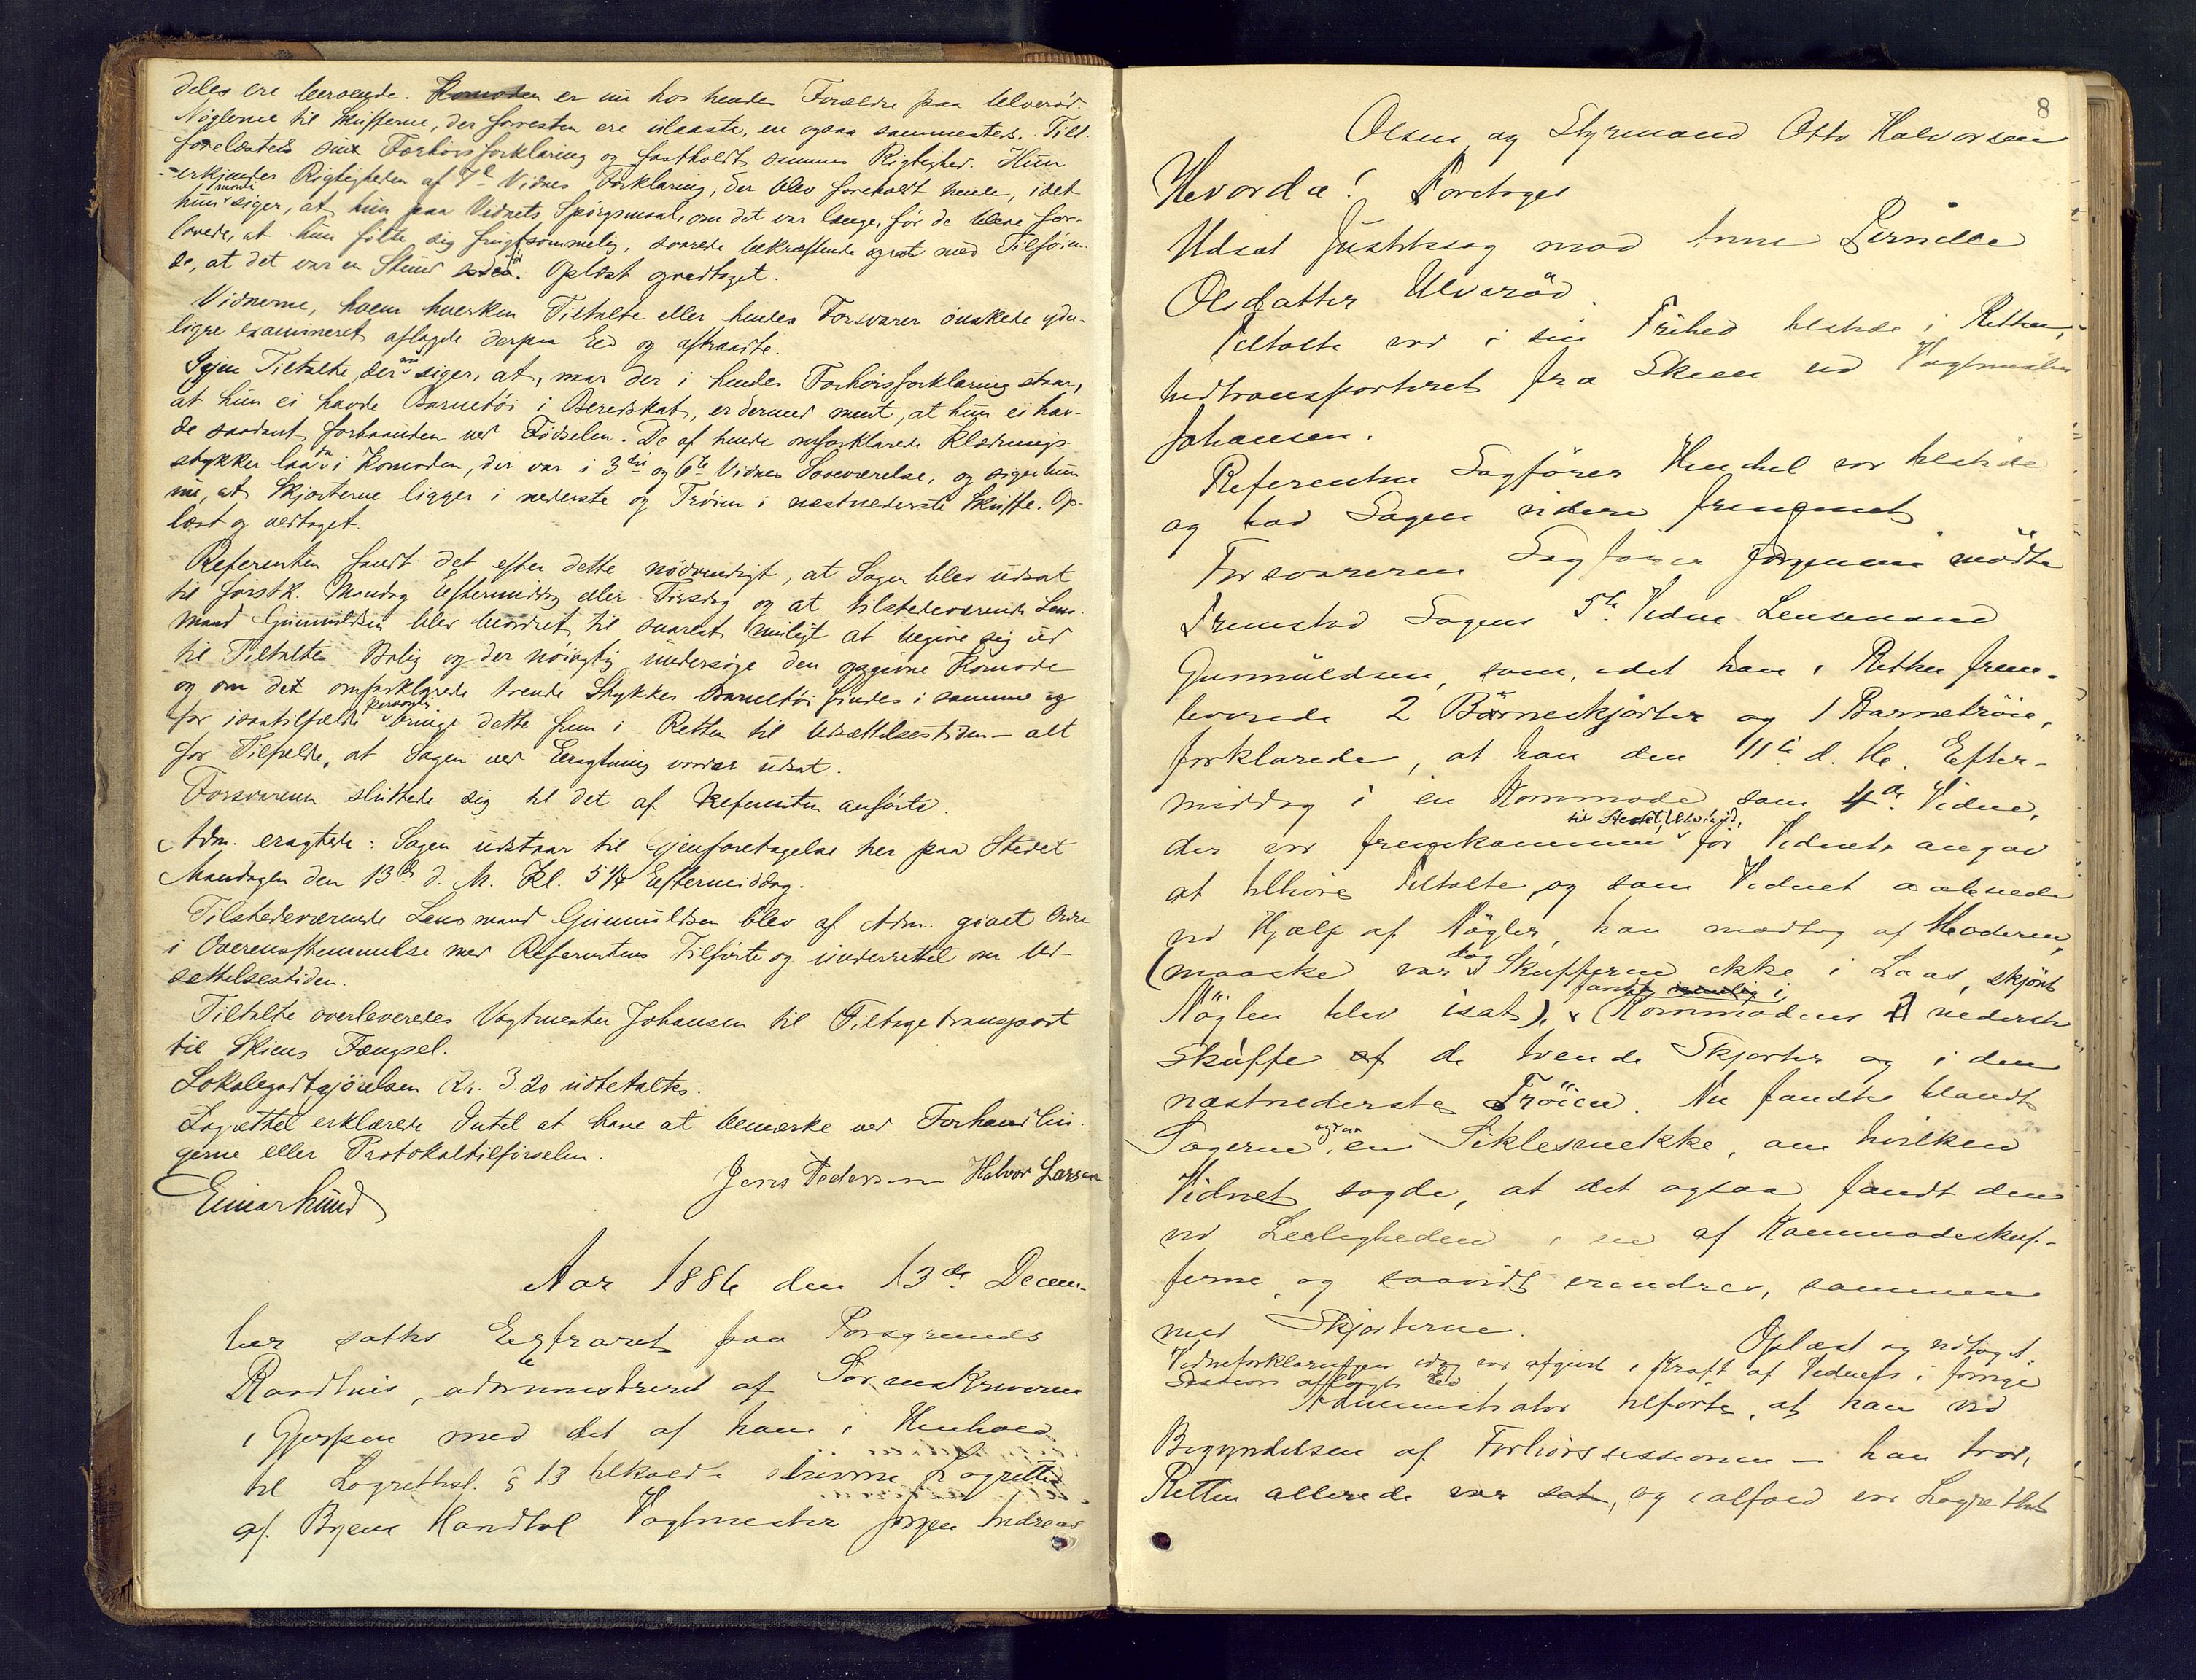 deles ere beroende. Komoden er nu hos hendes Forældre paa Ulverød.
Nøglerne til Skufferne, der forresten ere ulaaste, ere ogsaa sammesteds. Tilt.
forelæstes sin Forhørsforklaring og fastholdt sammes Rigtighed. Hun
erkjender Rigtigheden af 7de Vidnes Forklaring, der blev foreholdt hende, idet
hun siger, at hun paa Vidnets Spørgsmaal, om det var længe, før de bleve for-
lovede, at hun følte sig frugtsommelig, svarede bekræftende med Tilføien-
de, at det var en Stund . Oplæst og vedtaget.
Vidnerne, hvem hverken Tiltalte eller hendes Forsvarer ønskede yder-
ligere examineret aflagde derpaa Ed og aftraadte.
Igjen Tiltalte, der nu siger, at, naar der i hendes Forhørsforklaring staar,
at hun ei havde Barnetøi i Beredskab, er dermed ment, at hun ei hav-
de saadant forhaanden ved Fødselen. De af hende omforklarede Klædnings-
stykker laa i Komoden, der var i 3die og 6te Vidnes Soveværelse, og siger hun
nu, at Skjorterne ligger i nederste og Trøien i næstnederste Skuffe. Op-
læst og vedtaget.
Referenten fandt det efter dette nødvendigt, at Sagen blev udsat
til førstk. Mandag Eftermiddag eller Tirsdag og at tilstedeværende Lens-
mand Gunnuldsen blev beordret til snarest muligt at begive sig ud
til Tiltaltes Bolig og der nøiagtig undersøge den opgivne Komode
og om det omforklarede trende Stykker Barnetøi findes i samme og
for isaatilfælde personlig bringe dette frem i Retten til Udsættelsestiden - alt
for Tilfælde, at Sagen ved Eragtning vorder udsat.
Forsvareren sluttede sig til det af Referenten anførte.
Adm. eragtede: Sagen udstaar til Gjenforetagelse her paa Stedet
Mandagen den 13de d. M. Kl. 5 1/4 Eftermiddag.
Tilstedeværende Lensmand Gunnuldsen blev af Adm. givet Ordre
i Overensstemmelse med Referentens Tilførte og underrettet om Ud-
sættelsestiden.
Tiltalte overleveredes Vagtmester Johansen til Tilbagetransport
til Skiens Fængsel.
Lokalegodtgjørelsen Kr. 3.20 udbetaltes.
Lagrettet erklærede Intet at have at bemærke ved Forhandlin-
gerne eller Protokoltilførselen.
Jens Pedersen Halvor Larsen
Einar Lund
Aar 1886 den 13de Decem-
ber sattes Extraret paa Porsgrunds
Raadhus, administreret af Sorenskriveren
i Gjerpen med det af ham i Henhold
til Lagrettesl. § 13 tilkaldte Lagrette
af Byens Mandtal Vagtmester Jørgen Andreas
8
Olsen og Styrmand Otto Halvorsen
Hvorda! Foretoges
Udsat Justitssag mod Anne Pernille
Olsdatter Ulverød.
Tiltalte var i sin Frihed tilstede i Retten,
hidtransporteret fra Skien ved Vagtmester
Johansen.
Referenten Sagfører Henchel var tilstede
og bad Sagen videre fremmet
Forsvareren Sagfører Jørgensen mødte
Fremstod Sagens 5te Vidne Lensmand
Gunnuldsen, som, idet han i Retten frem-
leverede 2 Børneskjorter og 1 Barnetrøie,
forklarede, at han den 11te d. M. Efter-
middag i en Kommode som 4de Vidne,
der var fremkommen til Stedet, Ulverød, for Vidnet, angav
at tilhøre Tiltalte, og som Vidnet aabnede
ved Hjælp af Nøgler, han modtog af Moderen,
(maaske var dog Skufferne ikke i Laas, skjønt
Nøglen blev isat), fandt i Kommodens nederste
Skuffe de tvende Skjorter og i den
næstnederste Trøien. Nu fandtes blandt
Sagerne ogsaa en Siklesmekke, om hvilken
Vidnet sagde, at det ogsaa fandt den
ved Leiligheden i en af Kommodeskuf-
ferne, og saavidt erindres, sammen
med Skjorterne. Oplæst og vedtaget.
Vidneforklaringen idag var afgivet i Kraft af Vidnets i forrige
Session aflagte Ed
Administrator tilførte, at han ved
Begyndelsen af Forhørssessionen - han tror,
Retten allerede var sat, og ialfald var Lagrettet